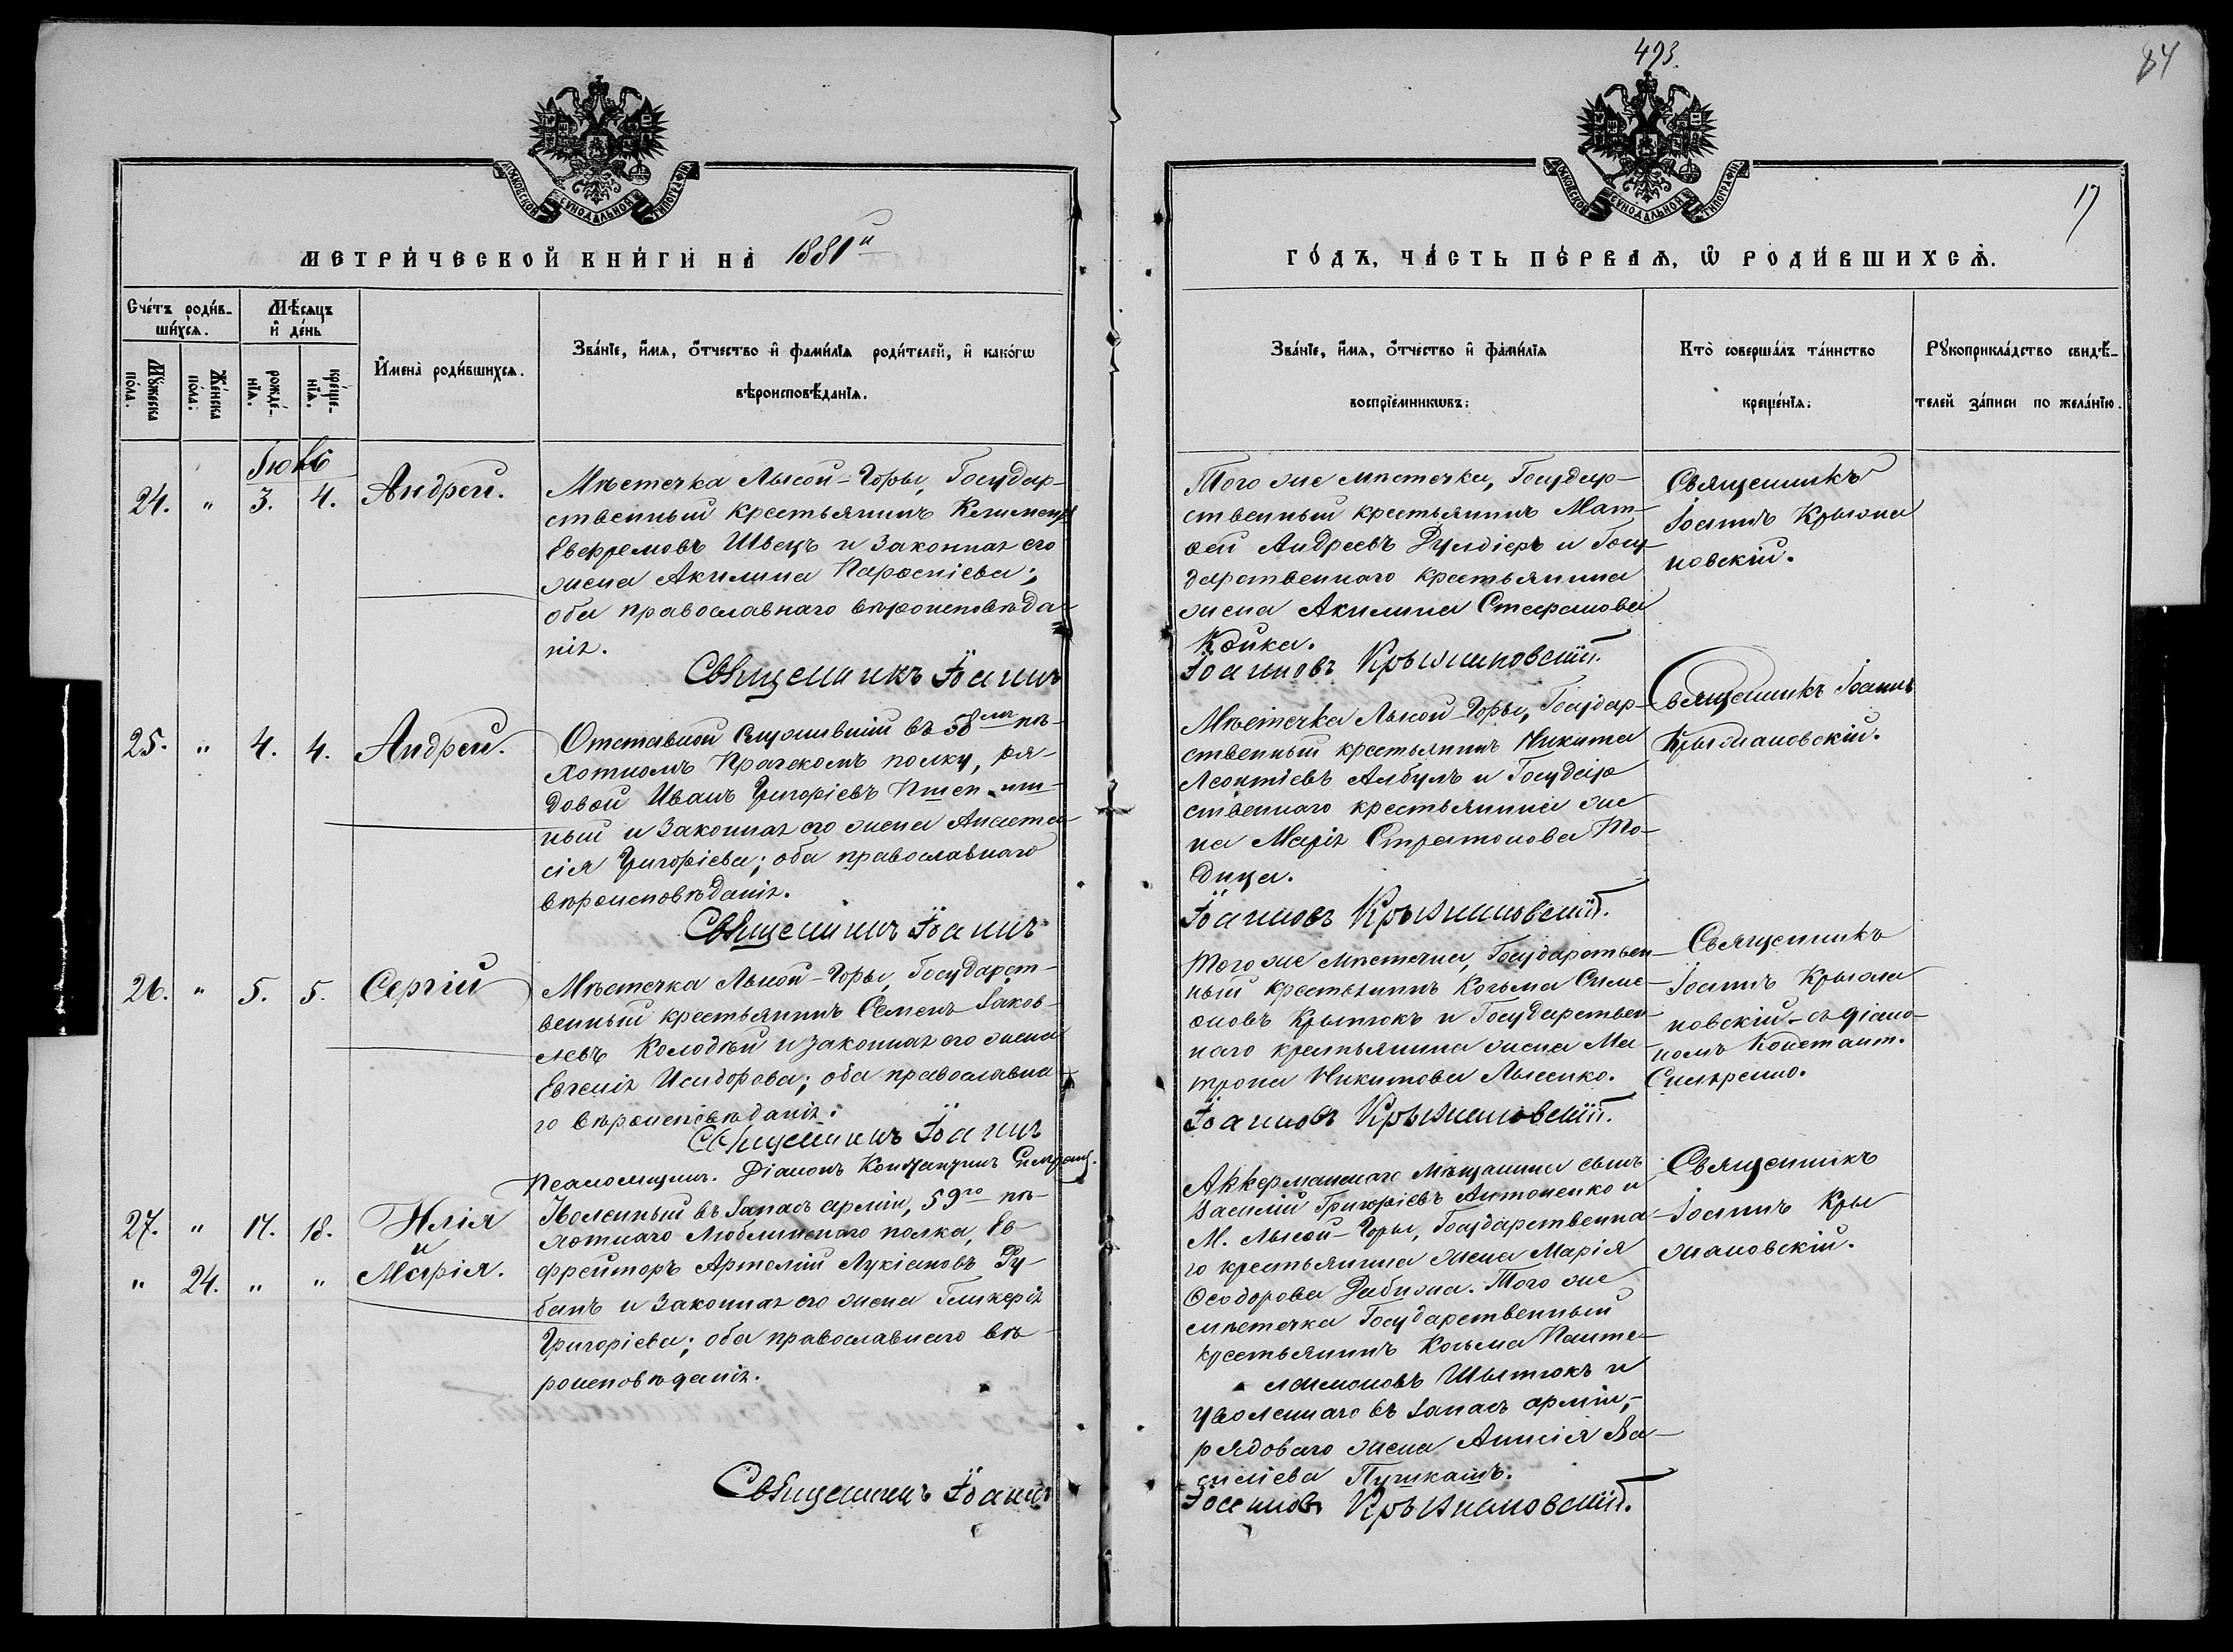 493.
84
17
МОСКОВСКОЙ СѴНОДАЛЬНОЙ ТИПОГРАФІИ
МОСКОВСКОЙ СѴНОДАЛЬНОЙ ТИПОГРАФІИ
МЕТРИ́ЧЕСКОЙ КНИ́ГИ НА̀ 1881й
ГО́ДЪ, ЧА́СТЬ ПЕ́РВАѦ, Ѡ҆ РОДИ́ВШИХСѦ.
Сче́тъ роди́в-
ши́хсѧ.
Мѣ́сѧцъ
и҆ де́нь
Му́жеска
по́ла.
Же́нска
по́ла:
рожде́-
нїѧ.
креще-
нїѧ.
И҆мена̀ роди́вшихсѧ.
Зва́нїе, и҆́мѧ, ѻ҆́тчество и҆ фами́лїѧ роди́телей, и҆ како́гѡ
вѣроисповѣ́данїѧ.
Зва́нїе, и҆́мѧ, ѻ҆́тчество и҆ фами́лїѧ
воспрїе́мникѡвъ:
Кто̀ соверша́лъ та́инство
креще́нїѧ:
Рꙋкоприкла́дство свидѣ́-
телей за́писи по жела́нїю.
Іюнь
24. " 3. 4. Андрей.
Мѣстечка Лысой-Горы, Государ-
ственный крестьянинъ Климентъ
Евфремовъ Швецъ и законная его
жена Акилина Параскіева;
оба православнаго вѣроисповѣда-
нія.
Священникъ Іоаннъ
Того же мѣстечка, Государ-
ственный крестьянинъ Мат-
ѳей Андреевъ и Госу-
дарственнаго крестьянина
жена Акилина Стефанова
Койка.
Іоанновъ Крыжановскій.
Священникъ
Іоаннъ Крыжа
новскій.
25. " 4. 4. Андрей.
Отставной служившій въ 58мъ пѣ-
хотномъ Прагскомъ полку, ря-
довой Иванъ Григоріевъ
ный и законная его жена Анаста-
сія Григоріева; оба православнаго
вѣроисповѣданія.
Священникъ Іоаннъ
Мѣстечка Лысой-Горы, Государ-
ственный крестьянинъ Никита
Леонтіевъ Албулъ и Государ
ственнаго крестьянина же
на Марія Стратонова То-
дица.
Іоанновъ Крыжановскій.
Священникъ Іоаннъ
Крыжановскій.
26. " 5. 5. Сергій
Мѣстечка Лысой-Горы, Государст-
венный крестьянинъ Семенъ Іаков-
левъ Колодѣй и законная его жена
Евгенія Исидорова; оба православна
го вѣроисповѣданія.
Священникъ Іоаннъ
Псаломщикъ. Діаконъ Константинъ
Того же мѣстечка, Государствен-
ный крестьянинъ Козьма Симе-
оновъ Крытюкъ и Государствен-
наго крестьянина жена Ма-
трона Никитова Лысенко.
Іоанновъ Крыжановскій.
Священникъ
Іоаннъ Крыжа
новскій съ діако-
номъ Констант.
27. " 17. 18. Илія
и
" 24. " " Марія.
Уволенный въ запасъ арміи, 59го пѣ-
хотнаго Люблинскаго полка, Еф-
фрейторъ Артемій Лукіановъ Гу-
банъ и законная его жена Гликерія
Григоріева; оба православнаго вѣ-
роисповѣданія.
Священникъ Іоаннъ
Аккерманскаго Мѣщанина сынъ
Василій Григоріевъ Антоненко и
М. Лысой-Горы, Государственна
го крестьянина жена Марія
Ѳеодорова Дабижа. Того же
мѣстечка Государственный
крестьянинъ Козьма Панте-
леимоновъ Шытюкъ и
уволеннаго въ запасъ арміи,
рядоваго жена Аннисія Ва-
силіева Пушкашъ.
Іоанновъ Крыжановскій.
Священникъ
Іоаннъ Кры
жановскій.